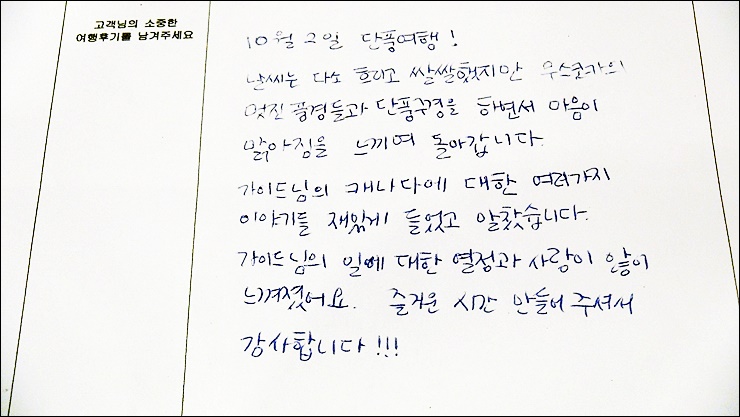 고객님의 소중한
여행후기를 남겨주세요
10월 2일 단풍여행!
날씨는 다소 흐리고 쌀쌀했지만 무스코카의
멋진 풍경들과 단풍구경을 하면서 마음이
맑아짐을 느끼며 돌아갑니다.
가이드님의 캐나다에 대한 여러가지
이야기를 재밌게 들었고 알찼습니다.
가이드님의 일에 대한 열정과 사랑이 많이
느껴졌어요. 즐거운 시간 만들어 주셔서
감사합니다!!!